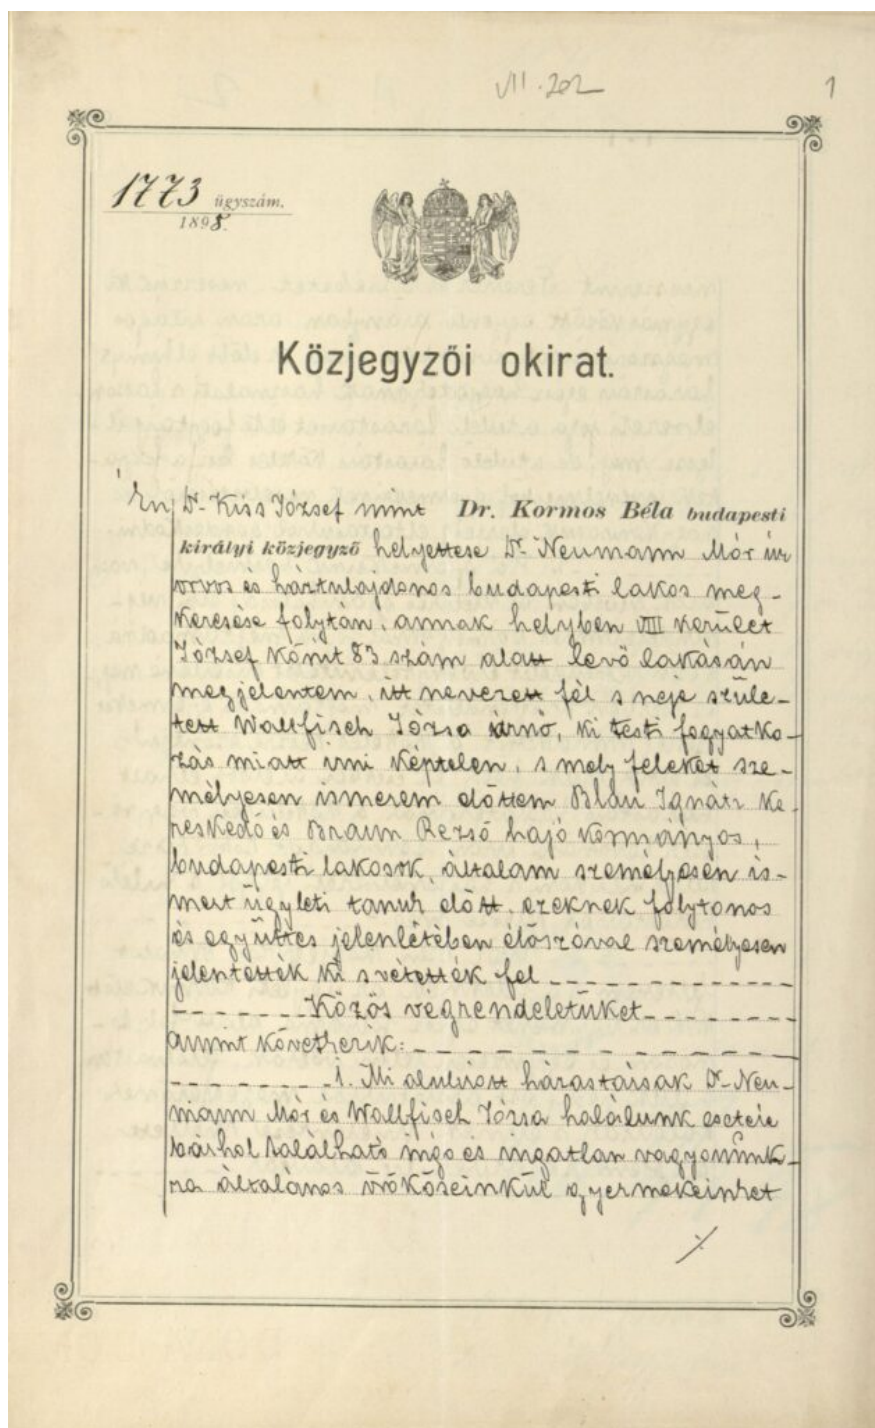 VII. 202
1
1773 ügyszám.
1898.
Közjegyzői okirat.
Én Dr. Kiss József mint Dr. Kormos Béla budapesti
királyi közjegyző helyettese Dr. Neumann Mór úr
orvos és háztulajdonos budapesti lakos meg-
keresése folytán, annak helyben VIII kerület
József körút 83 szám alatt levő lakásán
megjelentem, itt nevezett fél s neje szüle-
tett Wallfisch Józsa úrnő, ki testi fogyatko-
zás miatt irni képtelen, s mely feleket sze-
mélyesen ismerem előttem Blau Ignátz ke-
reskedő és Braun Rezső hajó kormányos,
budapesti lakosok, általam személyesen is-
mert ügyleti tanuk előtt, ezeknek folytonos
és együttes jelenlétében élőszóval személyesen
jelentették ki s vétették fel
Közös végrendeletüket
amint következik:
1. Mi alulirott házastársak Dr. Neu-
mann Mór és Wallfisch Józsa halálunk esetére
bárhol található ingó és ingatlan vagyonunk-
ra általános örököseinkül gyermekeinket
./.